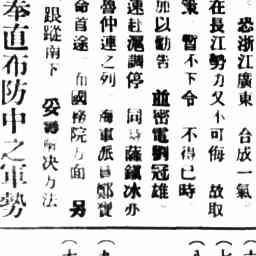 恐浙江廣東　台成一氣
在長江勢力又不可侮　故取
策　暫不下令　不得已時
加以勸告　並密電劉冠雄
速赴滬調停　同時薩鎮冰亦
魯仲連之列　海軍派員鄭寶
命首途　而國務院方面　另
跟蹤南下　妥籌解决方法
奉直布防中之軍勢
（八
（九
（十